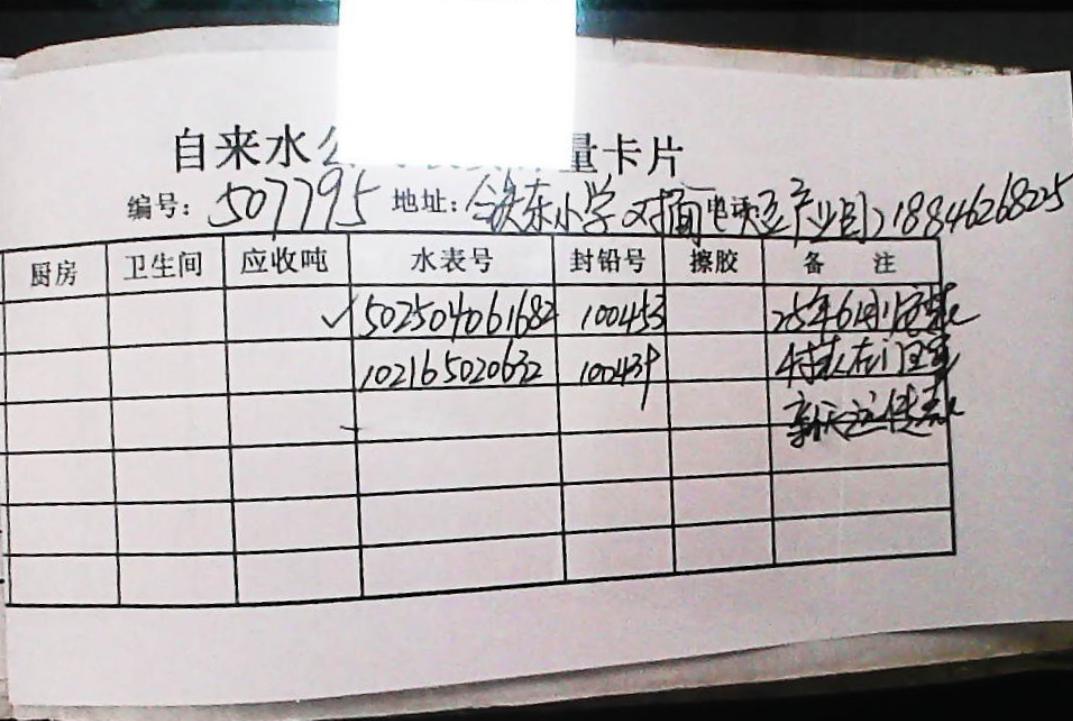 自来水公 量卡片
编号: 507795 地址: 铁东小学对面 电话 产业园 1884626825
厨房 卫生间 应收吨 水表号 封铅号 擦胶 备 注
✓ 502504061682 100453 25年6月
102165020632 100439 在门卫室